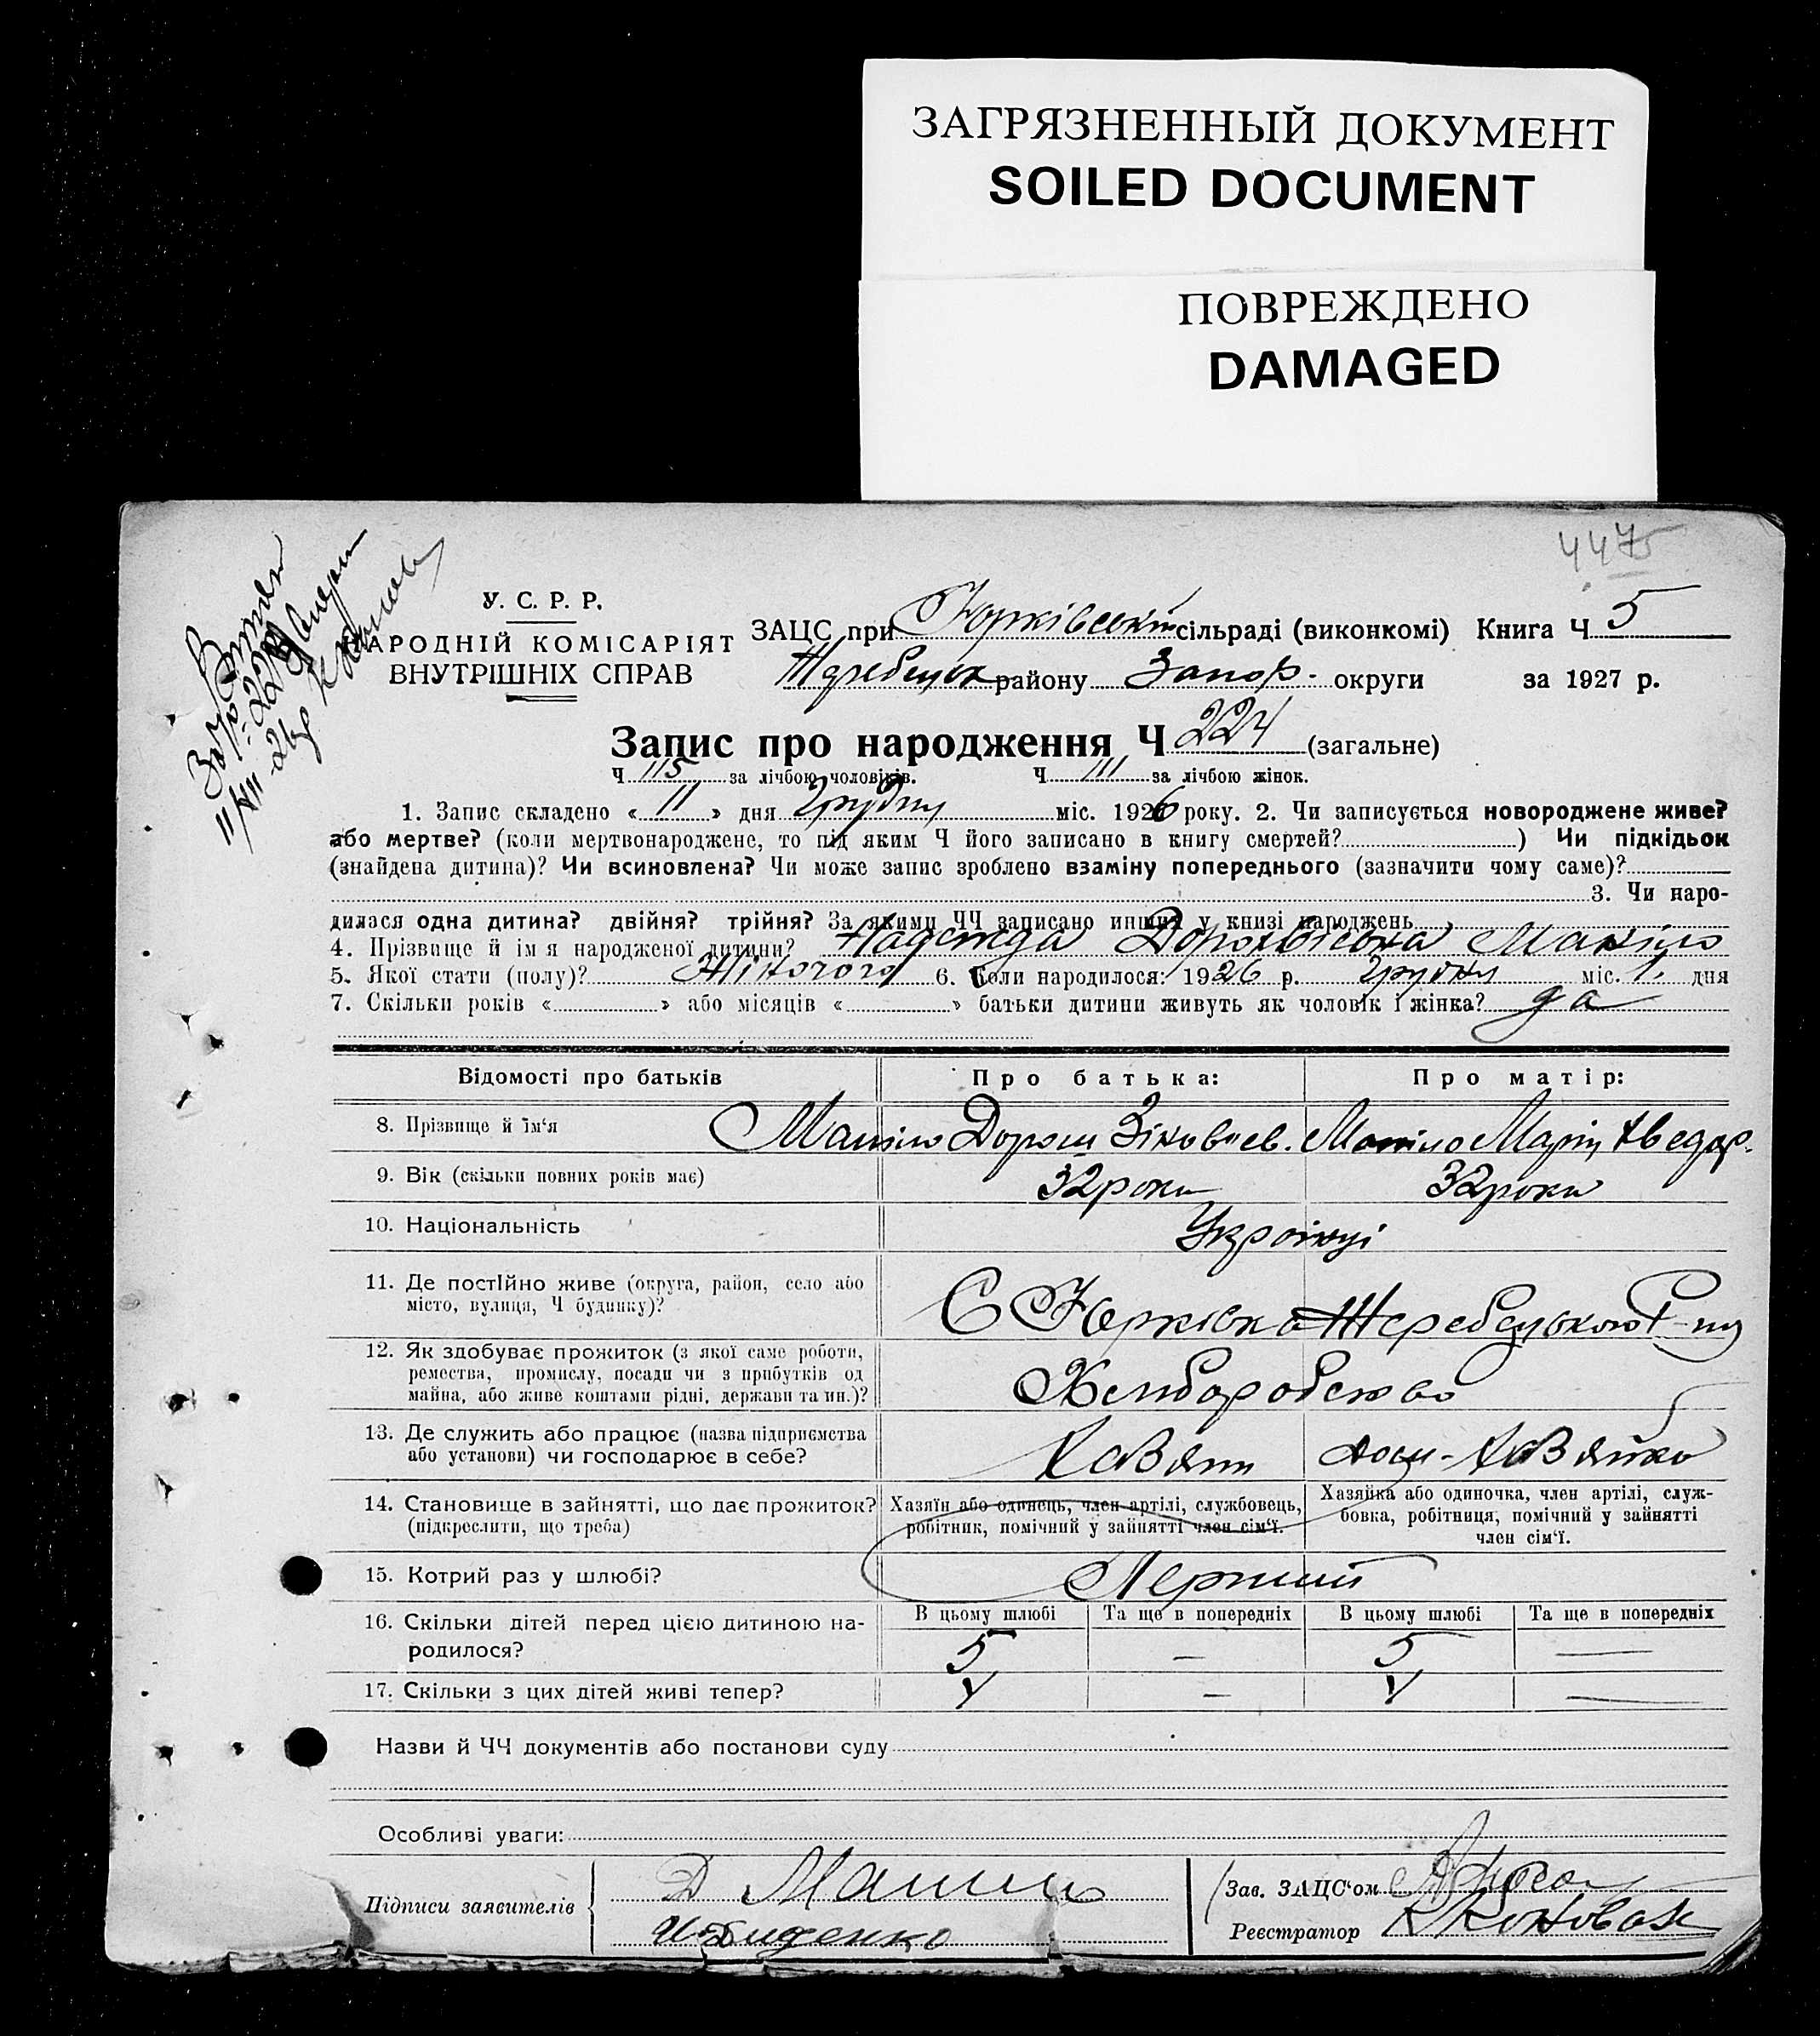 ЗАГРЯЗНЕННЫЙ ДОКУМЕНТ
SOILED DOCUMENT
ПОВРЕЖДЕНО
DAMAGED
4475
У. С. Р. Р.
НАРОДНІЙ КОМІСАРІЯТ
ВНУТРІШНІХ СПРАВ
ЗАЦС при Юрківській сільраді (виконкомі) Книга Ч 5
району Запор. округи за 1927 р.
Запис про народження Ч 224 (загальне)
Ч 115 за лічбою чоловіків. Ч 111 за лічбою жінок.
1. Запис складено « 11 » дня грудня міс. 1926 року. 2. Чи записується новороджене живе?
або мертве? (коли мертвонароджене, то під яким Ч його записано в книгу смертей? ) Чи підкідьок
(знайдена дитина)? Чи всиновлена? Чи може запис зроблено взаміну попереднього (зазначити чому саме)?
3. Чи наро-
дилася одна дитина? двійня? трійня? За якими ЧЧ записано инших у книзі народжень
4. Прізвище й ім я народженої дитини? Надежда
5. Якої стати (полу)? Жіночого 6. Коли народилося: 1926 р. грудня міс. 1. дня
7. Скільки років « » або місяців « » батьки дитини живуть як чоловік і жінка? да
Відомості про батьків Про батька: Про матір:
8. Прізвище й їм'я
9. Вік (скільки повних років має) 32 роки 32 роки
10. Національність Українці
11. Де постійно живе (округа, район, село або
місто, вулиця, Ч будинку)? С Юрківка Жеребецького Р-ну
12. Як здобуває прожиток (з якої саме роботи,
ремества, промислу, посади чи з прибутків од
майна, або живе коштами рідні, держави та ин.)?
Хліборобство
13. Де служить або працює (назва підприємства
або установи) чи господарює в себе?
14. Становище в зайнятті, що дає прожиток?
(підкреслити, що треба)
Хазяїн або одинець, член артілі, службовець,
робітник, помічний у зайнятті член сім'ї.
Хазяйка або одиночка, член артілі, служ-
бовка, робітниця, помічний у зайнятті
член сім'ї.
15. Котрий раз у шлюбі? Перший
В цьому шлюбі Та ще в попередніх В цьому шлюбі Та ще в попередніх
16. Скільки дітей перед цією дитиною на-
родилося?
5 — 5 —
17. Скільки з цих дітей живі тепер?
Назви й ЧЧ документів або постанови суду
Особливі уваги:
Підписи заявителів
Диденко
Зав. ЗАЦС'ом
Реєстратор Коновал